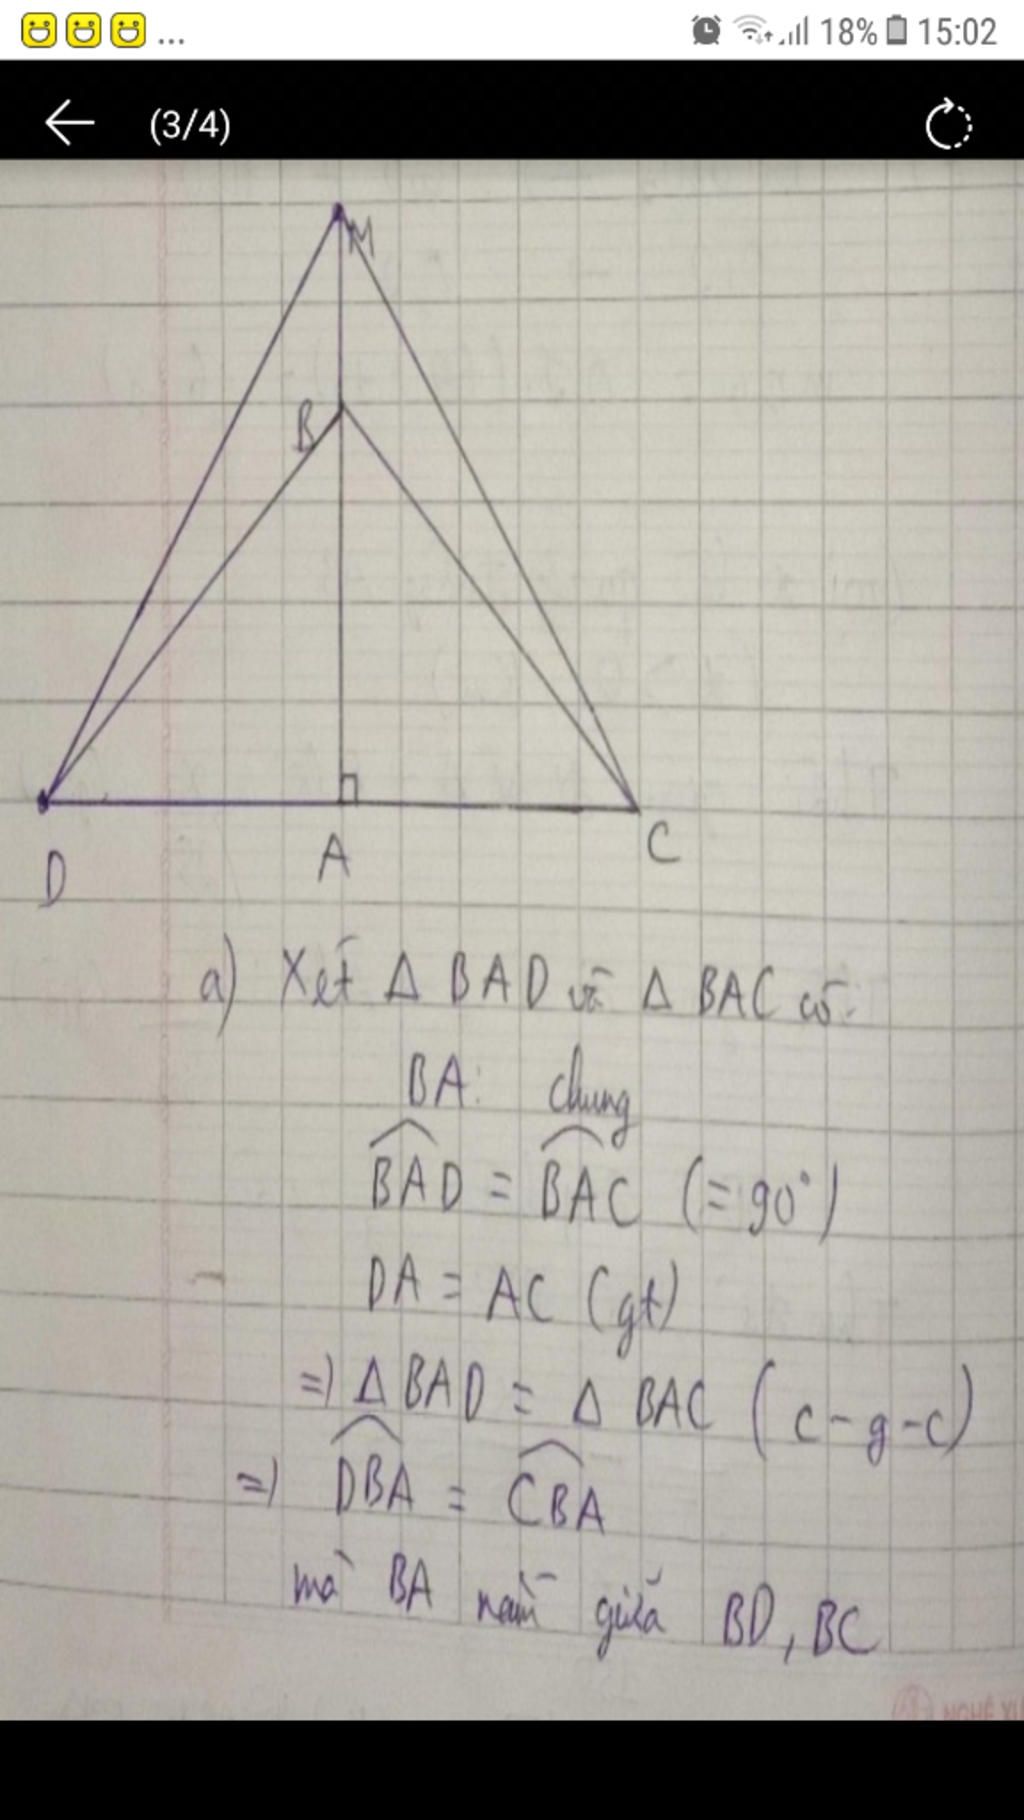 ... 18% 15:02
(3/4)
M
B
D A C
a) Xét Δ BAD và Δ BAC có:
BA: chung
BAD = BAC (= 90°)
DA = AC (gt)
=) Δ BAD = Δ BAC (c-g-c)
=) DBA = CBA
mà BA nằm giữa BD, BC